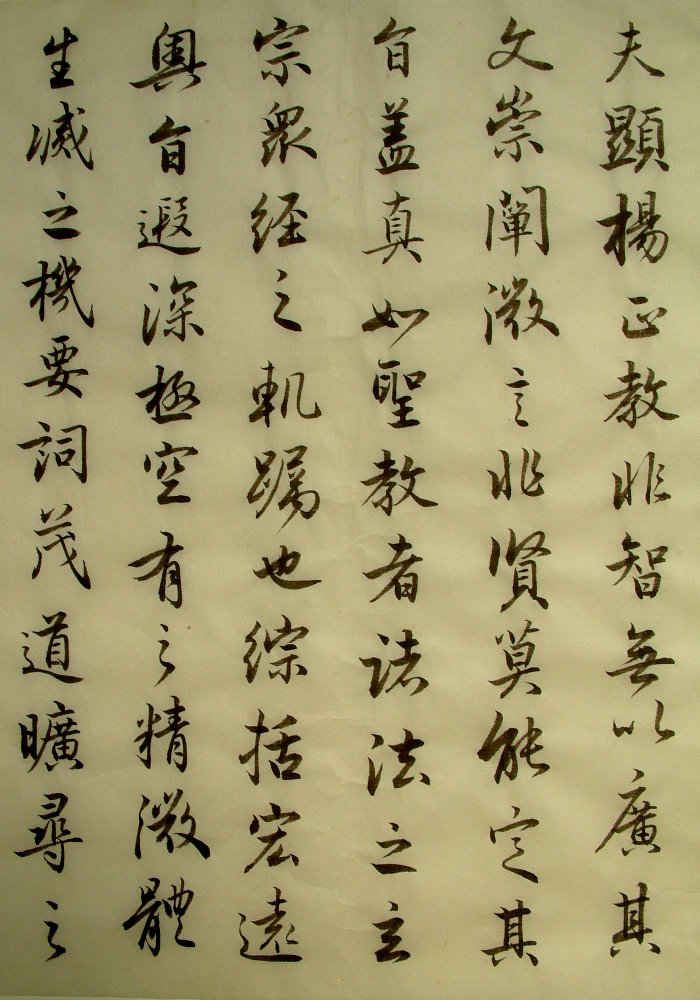 夫顯楊正教非智無以廣其
文崇闡微言非賢莫能定其
旨盖真如聖教者諸法之玄
宗眾經之軌躅也綜括宏遠
奧旨遐深極空有之精微體
生滅之機要詞茂道曠尋之